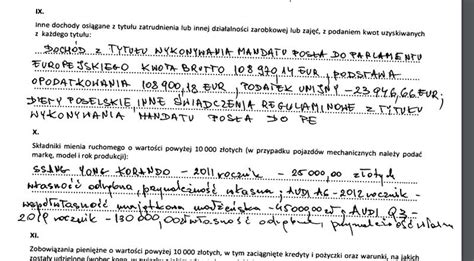 IX.
Inne dochody osiągane z tytułu zatrudnienia lub innej działalności zarobkowej lub zajęć, z podaniem kwot uzyskiwanych
z każdego tytułu:
DOCHÓD Z TYTUŁU WYKONYWANIA MANDATU POSŁA DO PARLAMENTU
EUROPEJSKIEGO KWOTA BRUTTO 108 970,14 EUR, PODSTAWA
OPODATKOWANIA 108 900,18 EUR, PODATEK UNIJNY -23 946,66 EUR;
DIETY POSELSKIE INNE ŚWIADCZENIA REGULAMINOWE Z TYTUŁU
WYKONYWANIA MANDATU POSŁA DO PE
X.
Składniki mienia ruchomego o wartości powyżej 10 000 złotych (w przypadku pojazdów mechanicznych należy podać
markę, model i rok produkcji):
SSANG YONG KORANDO - 2011 rocznik - 25 000,00 złotych
własność odrębna, przynależność własna; AUDI A6 - 2012 rocznik -
współwłasność majątkowa małżeńska - 45000,00 zł; AUDI Q3 -
2019 rocznik - 130 000,00 własność odrębna, przynależność
XI.
Zobowiązania pieniężne o wartości powyżej 10 000 złotych, w tym zaciągnięte kredyty i pożyczki oraz warunki, na jakich
zostały udzielone (wobec kogo, w związku z jakim